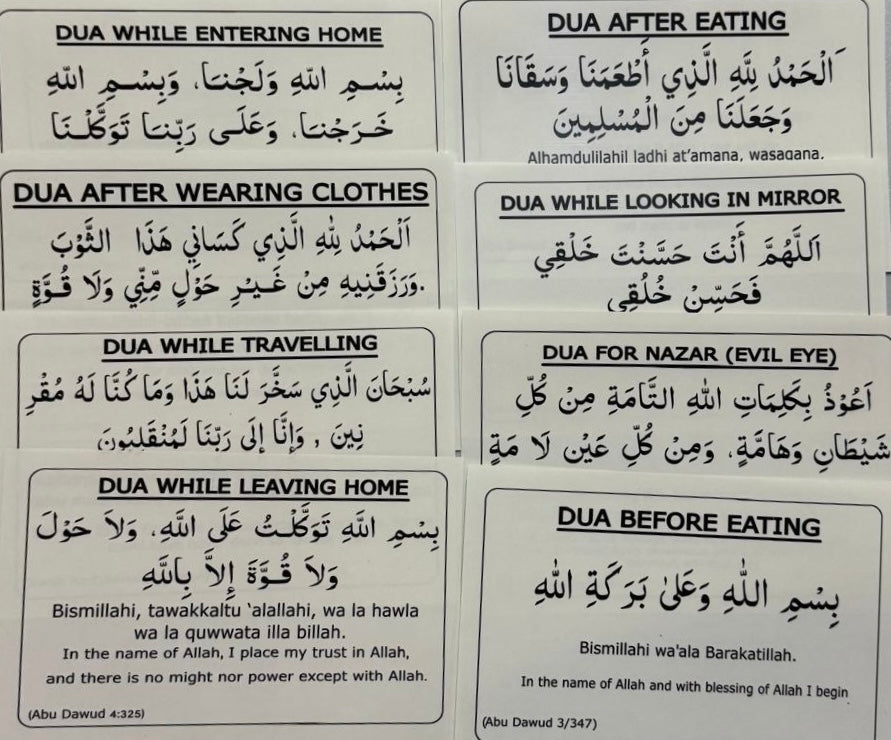 DUA WHILE ENTERING HOME
بِسْمِ اللّٰهِ وَلَجْنَا، وَبِسْمِ اللّٰهِ
خَرَجْنَا، وَعَلَى رَبِّنَا تَوَكَّلْنَا
DUA AFTER EATING
اَلْحَمْدُ لِلّٰهِ الَّذِي أَطْعَمَنَا وَسَقَانَا
وَجَعَلَنَا مِنَ الْمُسْلِمِينَ
Alhamdulilahil ladhi at'amana, wasaqana.
DUA AFTER WEARING CLOTHES
اَلْحَمْدُ لِلّٰهِ الَّذِي كَسَانِي هَذَا الثَّوْبَ
وَرَزَقَنِيهِ مِنْ غَيْرِ حَوْلٍ مِّنِّي وَلَا قُوَّةٍ.
DUA WHILE LOOKING IN MIRROR
اَللَّهُمَّ أَنْتَ حَسَّنْتَ خَلْقِي
فَحَسِّنْ خُلُقِي
DUA WHILE TRAVELLING
سُبْحَانَ الَّذِي سَخَّرَ لَنَا هَذَا وَمَا كُنَّا لَهُ مُقْرِ
نِينَ , وَإِنَّا إِلَى رَبِّنَا لَمُنْقَلِبُونَ
DUA FOR NAZAR (EVIL EYE)
اَعُوْذُ بِكَلِمَاتِ اللهِ التَّامَةِ مِنْ كُلِّ
شَيْطَانٍ وَهَامَّةٍ، وَمِنْ كُلِّ عَيْنٍ لَا مَةٍ
DUA WHILE LEAVING HOME
بِسْمِ اللّٰهِ تَوَكَّلْتُ عَلَى اللّٰهِ، وَلاَ حَوْلَ
وَلاَ قُوَّةَ إِلاَّ بِاللّٰهِ
Bismillahi, tawakkaltu 'alallahi, wa la hawla
wa la quwwata illa billah.
In the name of Allah, I place my trust in Allah,
and there is no might nor power except with Allah.
(Abu Dawud 4:325)
DUA BEFORE EATING
بِسْمِ اللّٰهِ وَعَلىٰ بَرَكَةِ اللهِ
Bismillahi wa'ala Barakatillah.
In the name of Allah and with blessing of Allah I begin
(Abu Dawud 3/347)